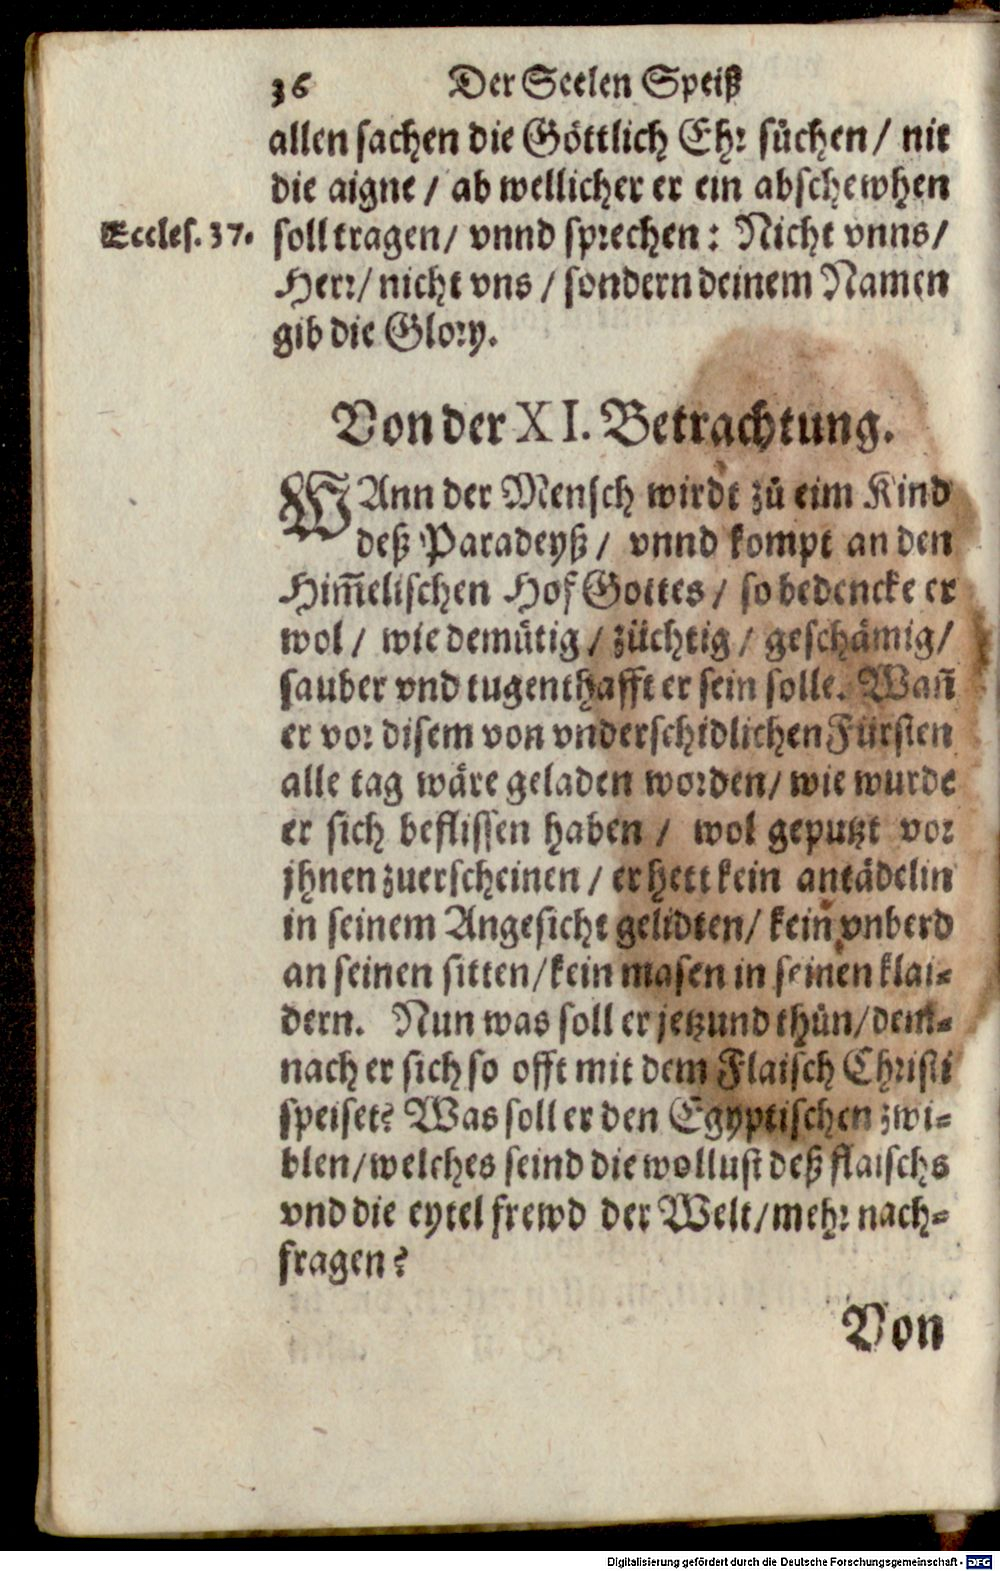 36 Der Seelen Speiß
allen sachen die Göttlich Ehr süchen / nit
die aigne / ab wellicher er ein abschewhen
Eccles. 37. soll tragen / vnnd sprechen: Nicht vnns /
Herr / nicht vns / sondern deinem Namen
gib die Glory.
Von der XI. Betrachtung.
WAnn der Mensch wirdt zů eim Kind
deß Paradeyß / vnnd kompt an den
Him̃elischen Hof Gottes / so bedencke er
wol / wie demütig / züchtig / geschämig /
sauber vnd tugenthafft er sein solle. Wañ
er vor disem von vnderschidlichen Fürsten
alle tag wäre geladen worden / wie wurde
er sich beflissen haben / wol geputzt vor
jhnen zuerscheinen / er hett kein antädelin
in seinem Angesicht gelidten / kein vnberd
an seinen sitten / kein masen in seinen klai-
dern. Nun was soll er jetzund thün / dem-
nach er sich so offt mit dem Flaisch Christi
speiset? Was soll er den Egyptischen zwi-
blen / welches seind die wollust deß flaischs
vnd die eytel frewd der Welt / mehr nach-
fragen?
Von
Digitalisierung gefördert durch die Deutsche Forschungsgemeinschaft - DFG